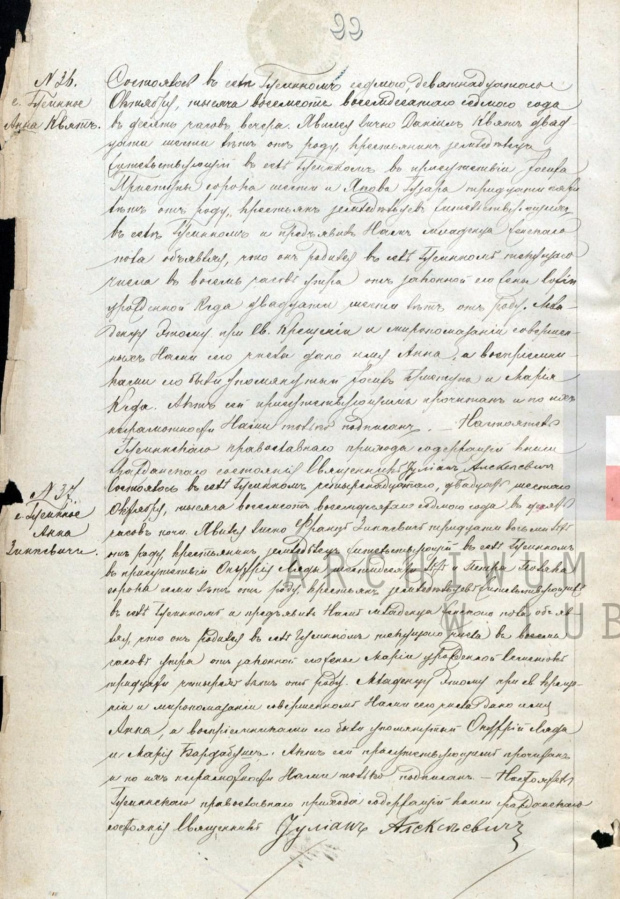 22
N 36.
с. Гусинное
Анна Квятъ.
Состоялось въ селѣ Гусинномъ седмого, девятнадцатого
Октября, тысяча восемьсотъ восемдесятаго седмого года
въ десять часовъ вечера. Явился лично Даніилъ Квятъ двад
цати шести лѣтъ отъ роду, крестьянинъ земледѣлецъ
жительствующій въ селѣ Гусинномъ въ присутствіи Іосифа
сорока шести и Якова тридцати
лѣтъ отъ роду, крестьянъ земледѣльцевъ жительствующихъ
въ селѣ Гусинномъ и предъявилъ Намъ младенца женскаго
пола объявляя, что онъ родился въ селѣ Гусинномъ текущаго
числа въ восемь часовъ утра отъ законной его жены Софіи
урожденной Кгда двадцати шести лѣтъ отъ роду. Мла
денцу этому при Св. Крещеніи и миропомазаніи совершен
ныхъ Нами сего числа дано имя Анна, а воспріемни
ками его были упомянутый Іосифъ и Марія
Кгда. Актъ сей присутствующимъ прочитанъ и по ихъ
неграмотности Нами только подписанъ. — Настоятель
Гусиннскаго православнаго прихода содержащій книги
гражданскаго состоянія Священникъ Іуліанъ Алексѣевичъ
N 37.
с. Гусинное
Анна
Зинкевичъ.
Состоялось въ селѣ Гусинномъ, двадцать шестаго
Октября, тысяча восемьсотъ восемдесятаго седмого года въ
часовъ ночи. Явился лично Францъ Зинкевичъ тридцати восьми лѣтъ
отъ роду, крестьянинъ земледѣлецъ жительствующій въ селѣ Гусинномъ
въ присутствіи Онуфрія Ляды шестидесяти лѣтъ и Петра
сорока семи лѣтъ отъ роду, крестьянъ земледѣльцевъ жительствующихъ
въ селѣ Гусинномъ и предъявилъ Намъ младенца женскаго пола объяв
ляя, что онъ родился въ селѣ Гусинномъ текущаго числа въ восемь
часовъ утра отъ законной его жены Маріи урожденной
тридцати четырехъ лѣтъ отъ роду. Младенцу этому при св. креще
ніи и миропомазаніи совершенномъ Нами сего числа дано имя
Анна, а воспріемниками его были упомянутый Онуфрій Ляда
и Марія Актъ сей присутствующимъ прочитанъ
и по ихъ неграмотности Нами только подписанъ — Настоятель
Гусиннскаго православнаго прихода содержащій книги гражданскаго
состоянія Священникъ Іуліанъ Алексѣевичъ
ARCHIWUM
W LUB